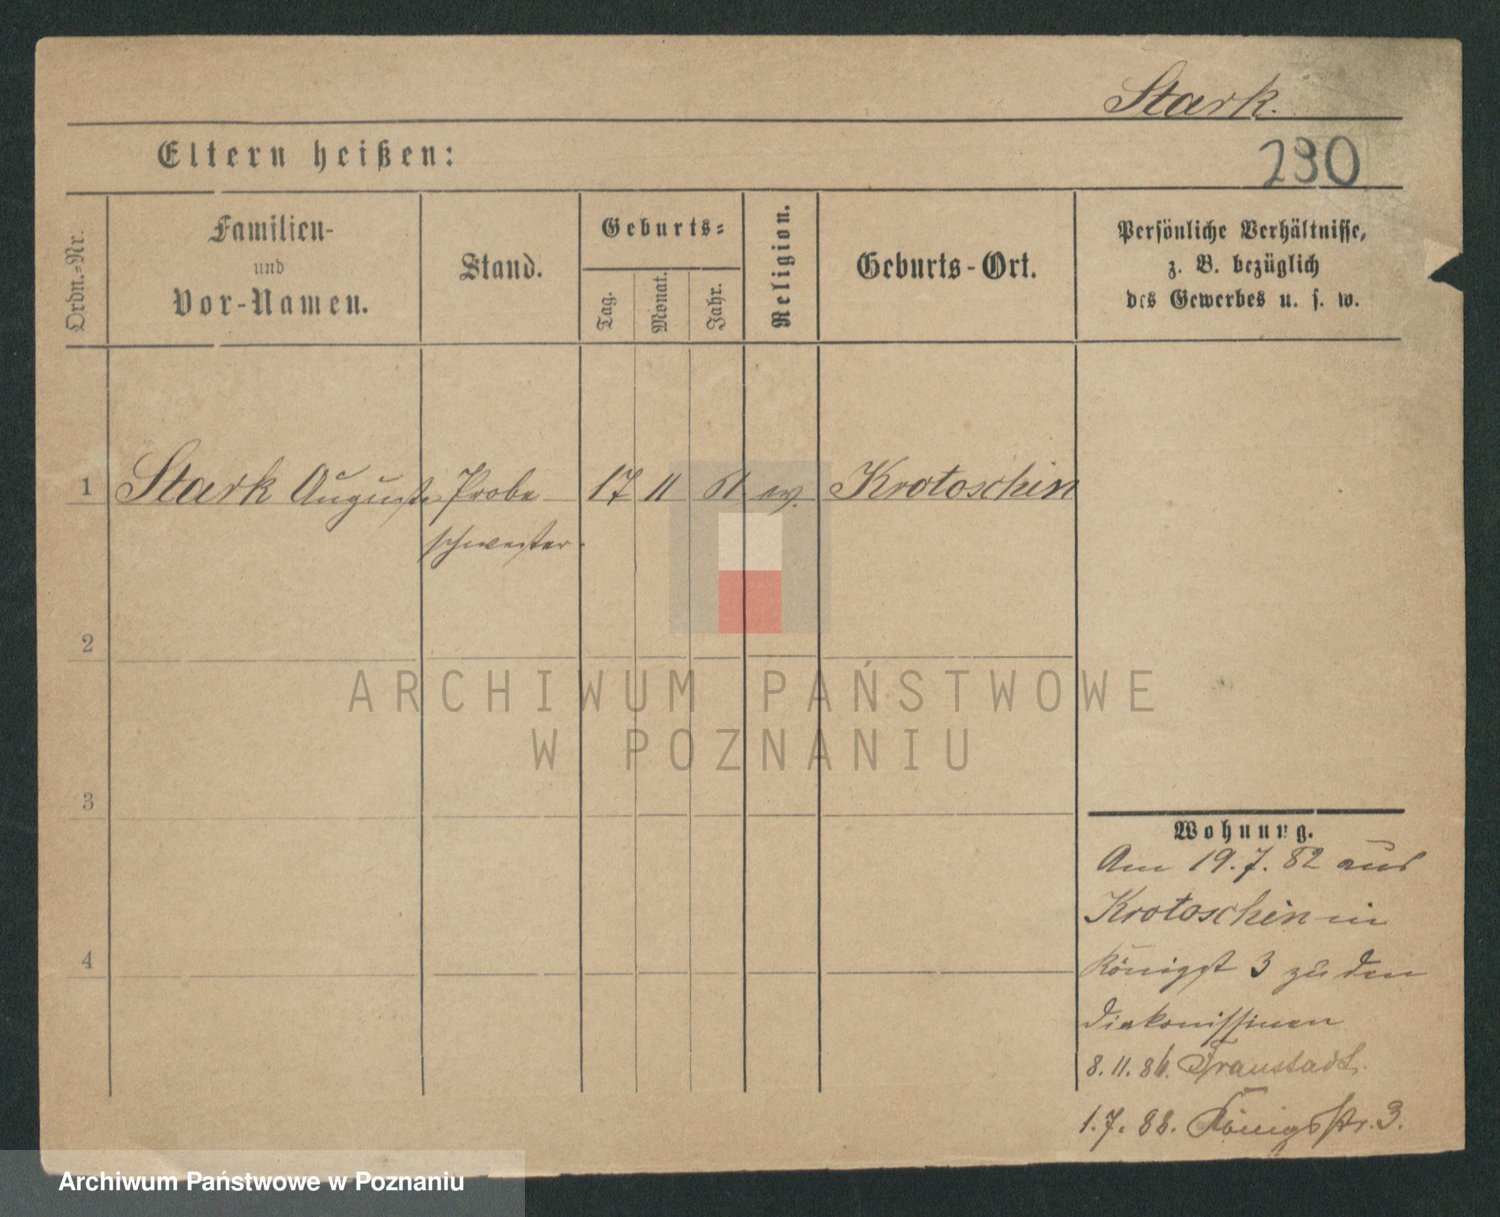 Stark.
Eltern heißen:
230
Ordn.=Nr.
Familien-
und
Vor-Namen.
Stand.
Geburts=
Tag.
Monat.
Jahr.
Religion.
Geburts-Ort.
Persönliche Verhältnisse,
z. B. bezüglich
des Gewerbes u. s. w.
1 Stark Auguste Probe 17 11 61 ev. Krotoschin
schwester.
2
3
4
ARCHIWUM PAŃSTWOWE
W POZNANIU
Wohnung.
Am 19.7.82 aus
Krotoschin in
Königst 3 zu den
Diakonissinen
8.11.86. Fraustadt.
1.7.88. Königsstr. 3.
Archiwum Państwowe w Poznaniu